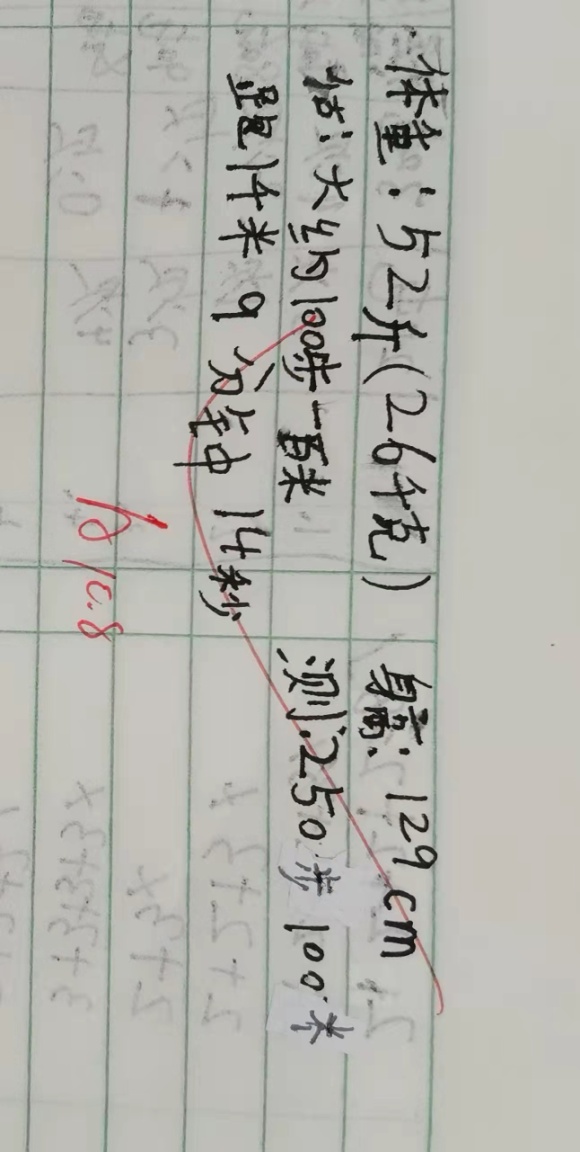 体重：52斤(26千克) 身高：129cm
估：大约100步一百米 测：250步100米
1千米 9分钟14秒
10.8